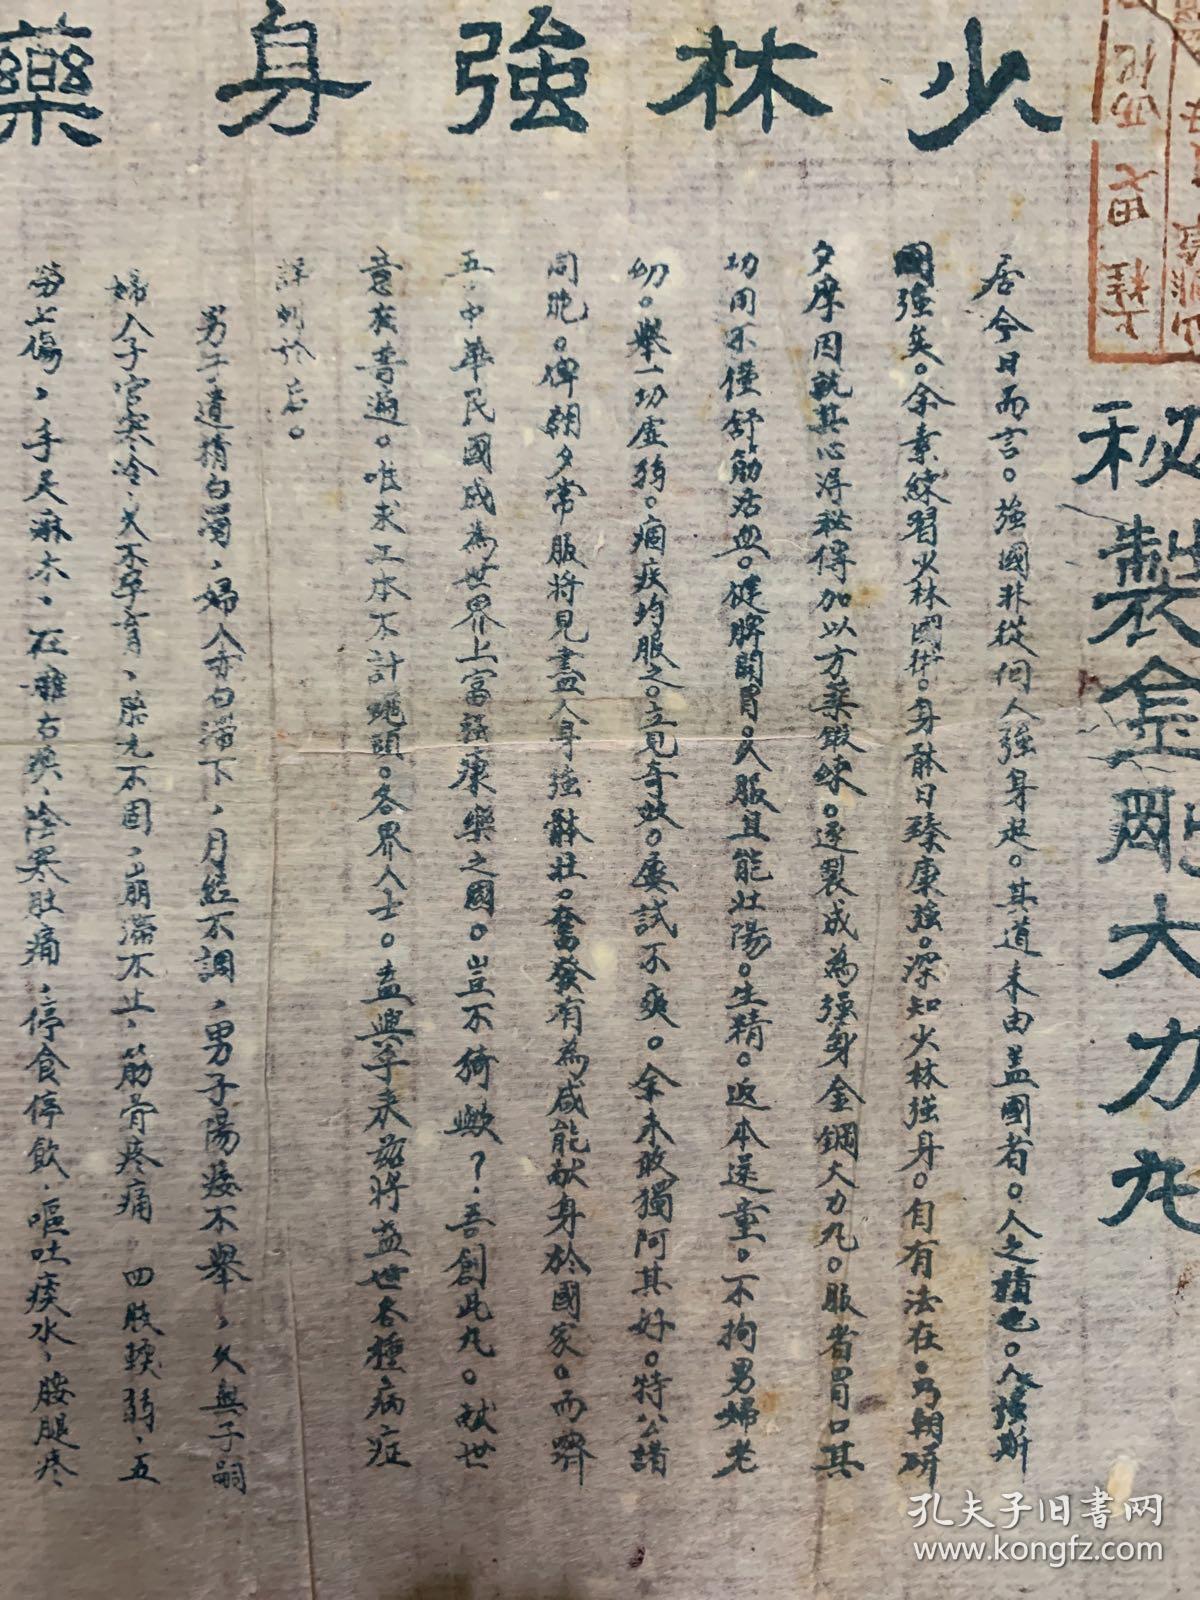 少林強身藥
秘製金剛大力丸
居今日而言。強國非從個人強身起。其道未由蓋國者。人之積也。人強斯
國強矣。余素練習少林國術。身體日臻康強。深知少林強身。自有法在。乃朝研
夕摩因就其心得秘傳加以方藥鍛練。遂製成為強身金鋼大力丸。服者胃口其
功用不僅舒筋活血。健脾開胃。久服且能壯陽。生精。返本還童。不拘男婦老
幼。舉一切虛弱。痼疾均服之。立見奇效。屡試不爽。余未敢獨阿其好。特公諸
同胞。俾朝夕常服將見盡人身強體壯。奮發有為咸能献身於國家。而躋
五中華民國成為世界上富強康樂之國。豈不猗歟？吾創此丸。献世
意在普遍。唯求工本不計蠅頭。各界人士。盍興乎來兹將蓋世各種病症
詳列於后。
男子遺精白濁、婦人赤白滯下，月經不調，男子陽痿不舉，久無子嗣
婦人子宮寒冷、久不孕育、胎元不固，崩漏不止、筋骨疼痛 四肢軟弱、五
勞七傷，手足麻木，左癱右瘓、陰寒肚痛，停食停飲、嘔吐痰水，腰腿疼
孔夫子旧书网
www.kongfz.com